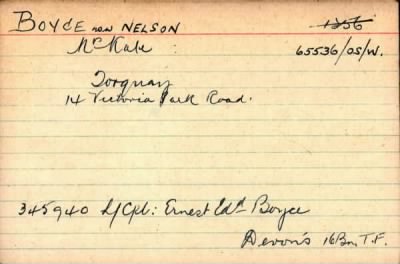 BOYCE now NELSON 1256
Mrs Kate : 65536/OS/W.
Torquay
14 Victoria Park Road.
345940 L/Cpl: Ernest Edd Boyce
Devon's 16Bn. T.F.